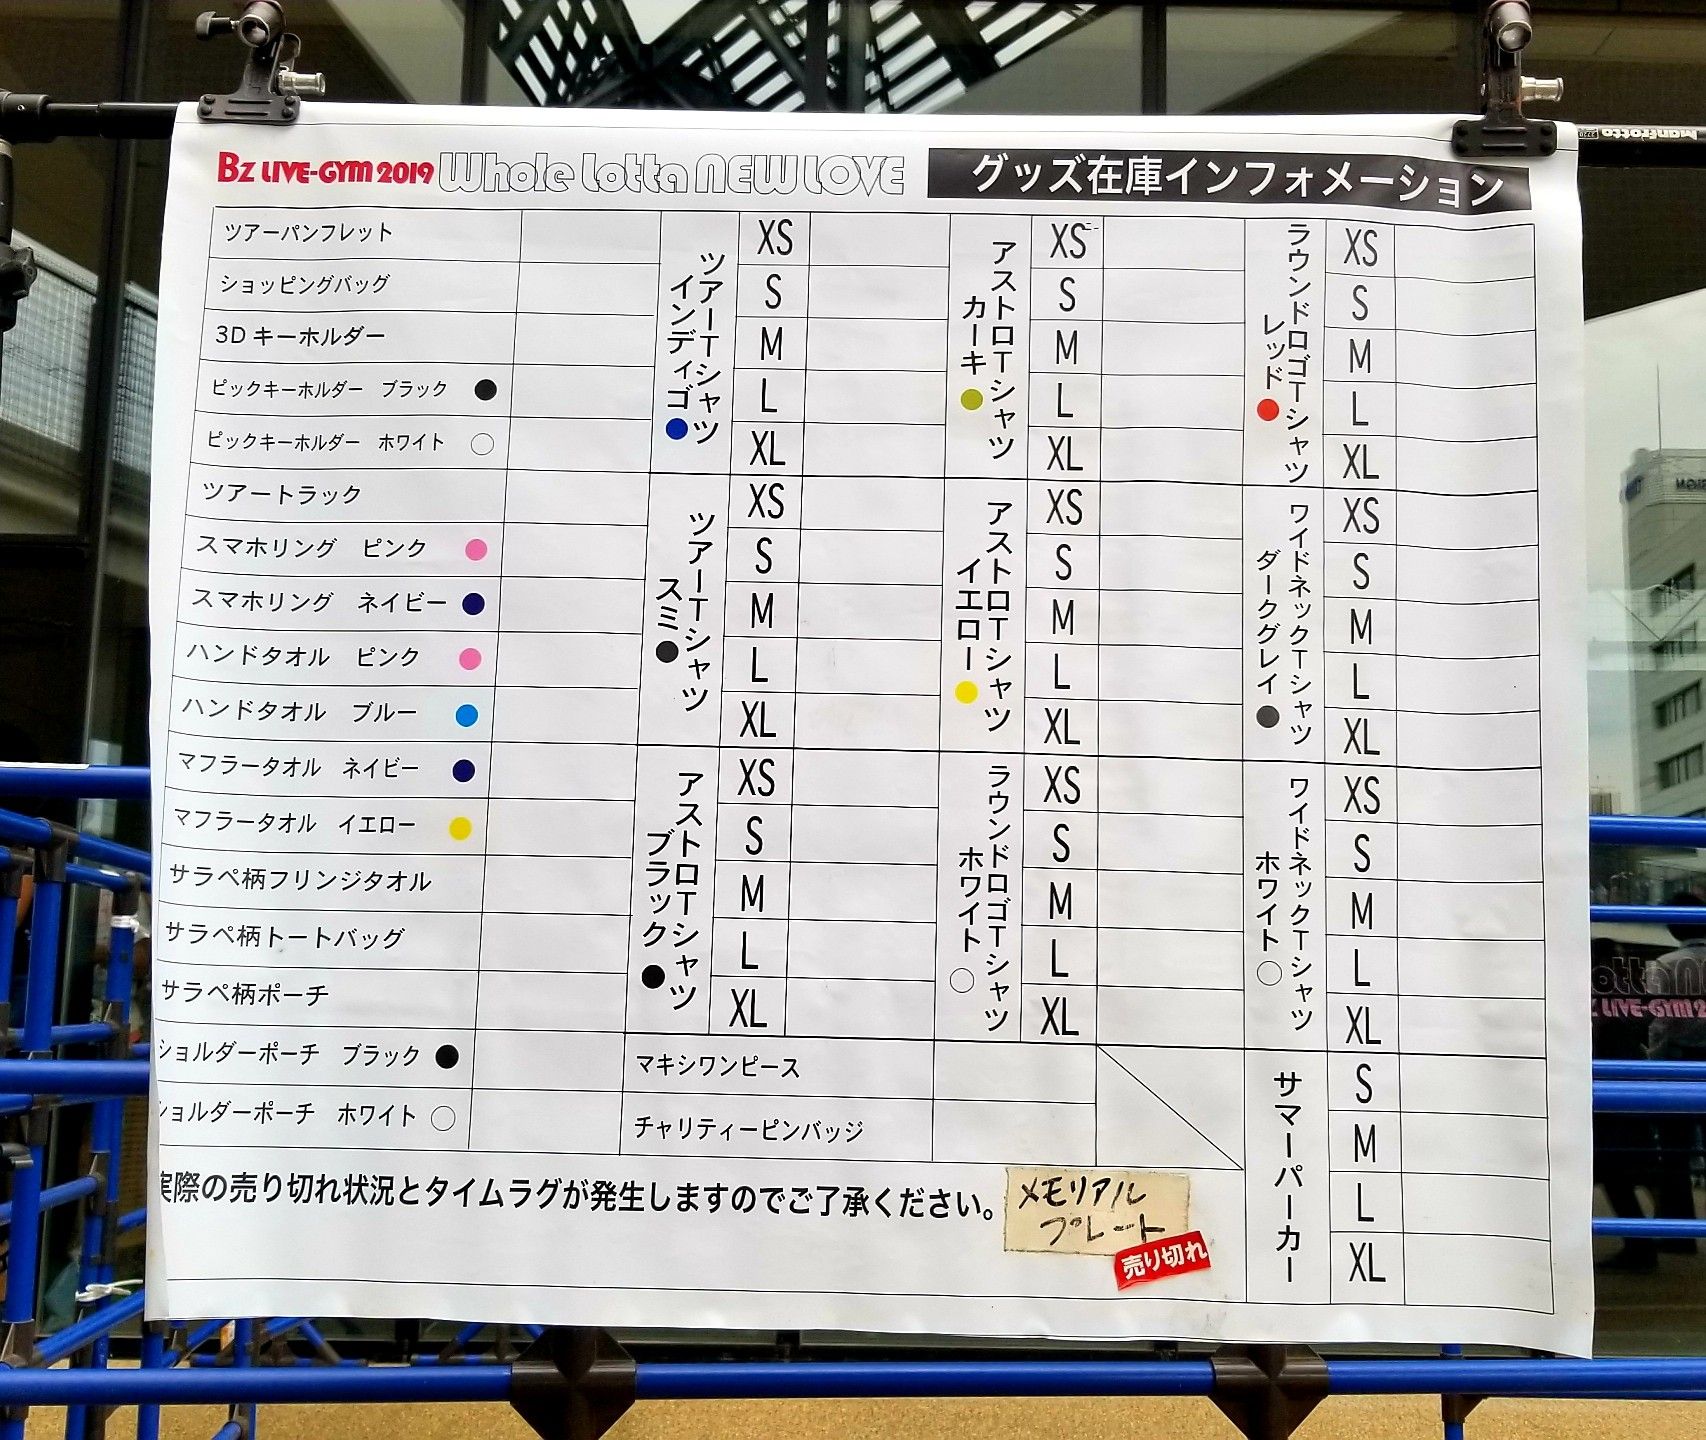 B'z LIVE-GYM 2019 Whole Lotta NEW LOVE
グッズ在庫インフォメーション
ツアーパンフレット
ショッピングバッグ
3Dキーホルダー
ピックキーホルダー ブラック
ピックキーホルダー ホワイト
ツアートラック
スマホリング ピンク
スマホリング ネイビー
ハンドタオル ピンク
ハンドタオル ブルー
マフラータオル ネイビー
マフラータオル イエロー
サラペ柄フリンジタオル
サラペ柄トートバッグ
サラペ柄ポーチ
ショルダーポーチ ブラック
ショルダーポーチ ホワイト
ツアーTシャツ
インディゴ
XS
S
M
L
XL
ツアーTシャツ
スミ
XS
S
M
L
XL
アストロTシャツ
ブラック
XS
S
M
L
XL
マキシワンピース
チャリティーピンバッジ
アストロTシャツ
カーキ
XS
S
M
L
XL
アストロTシャツ
イエロー
XS
S
M
L
XL
ラウンドロゴTシャツ
ホワイト
XS
S
M
L
XL
ラウンドロゴTシャツ
レッド
XS
S
M
L
XL
ワイドネックTシャツ
ダークグレイ
XS
S
M
L
XL
ワイドネックTシャツ
ホワイト
XS
S
M
L
XL
サマーパーカー
S
M
L
XL
実際の売り切れ状況とタイムラグが発生しますのでご了承ください。
メモリアル
プレート
売り切れ
Manfrotto